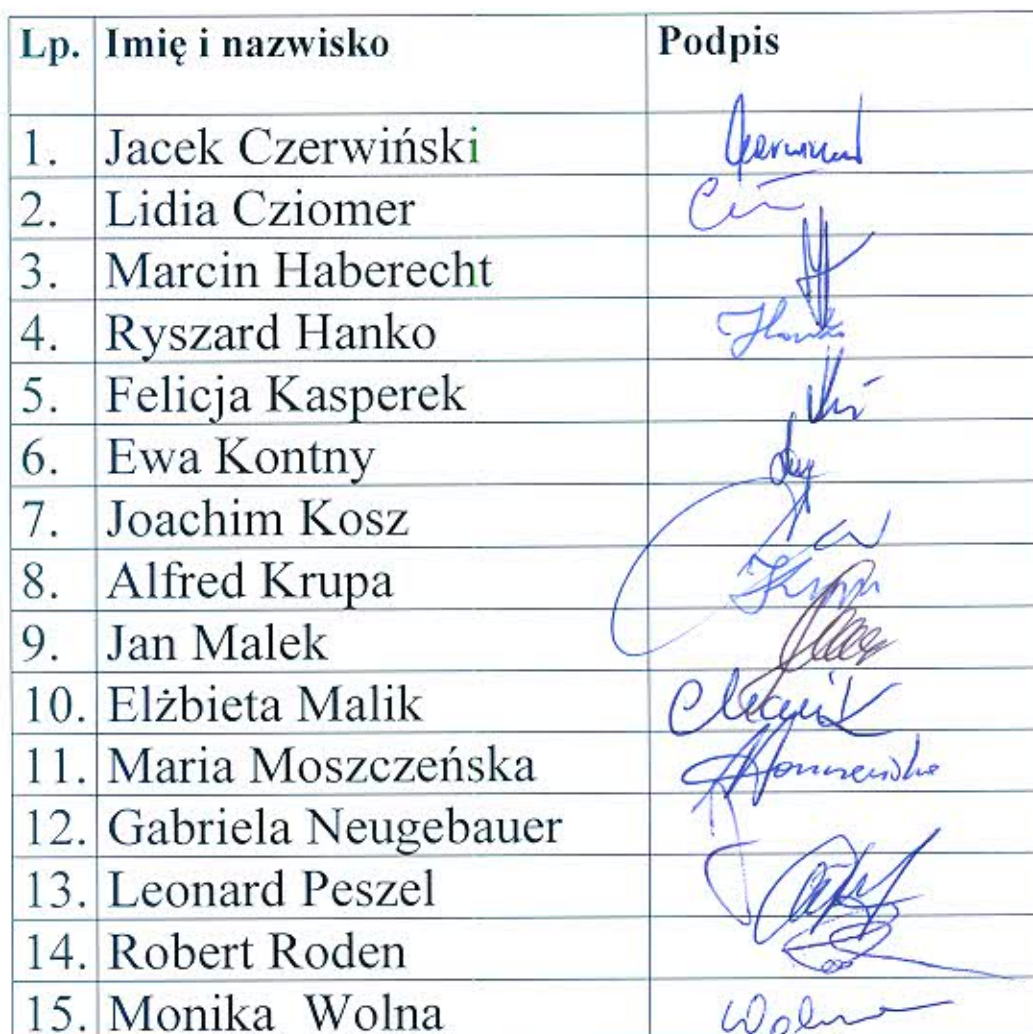 Lp. Imię i nazwisko Podpis
1. Jacek Czerwiński
2. Lidia Cziomer
3. Marcin Haberecht
4. Ryszard Hanko Hanko
5. Felicja Kasperek
6. Ewa Kontny
7. Joachim Kosz
8. Alfred Krupa
9. Jan Malek
10. Elżbieta Malik
11. Maria Moszczeńska
12. Gabriela Neugebauer
13. Leonard Peszel
14. Robert Roden
15. Monika Wolna Wolna